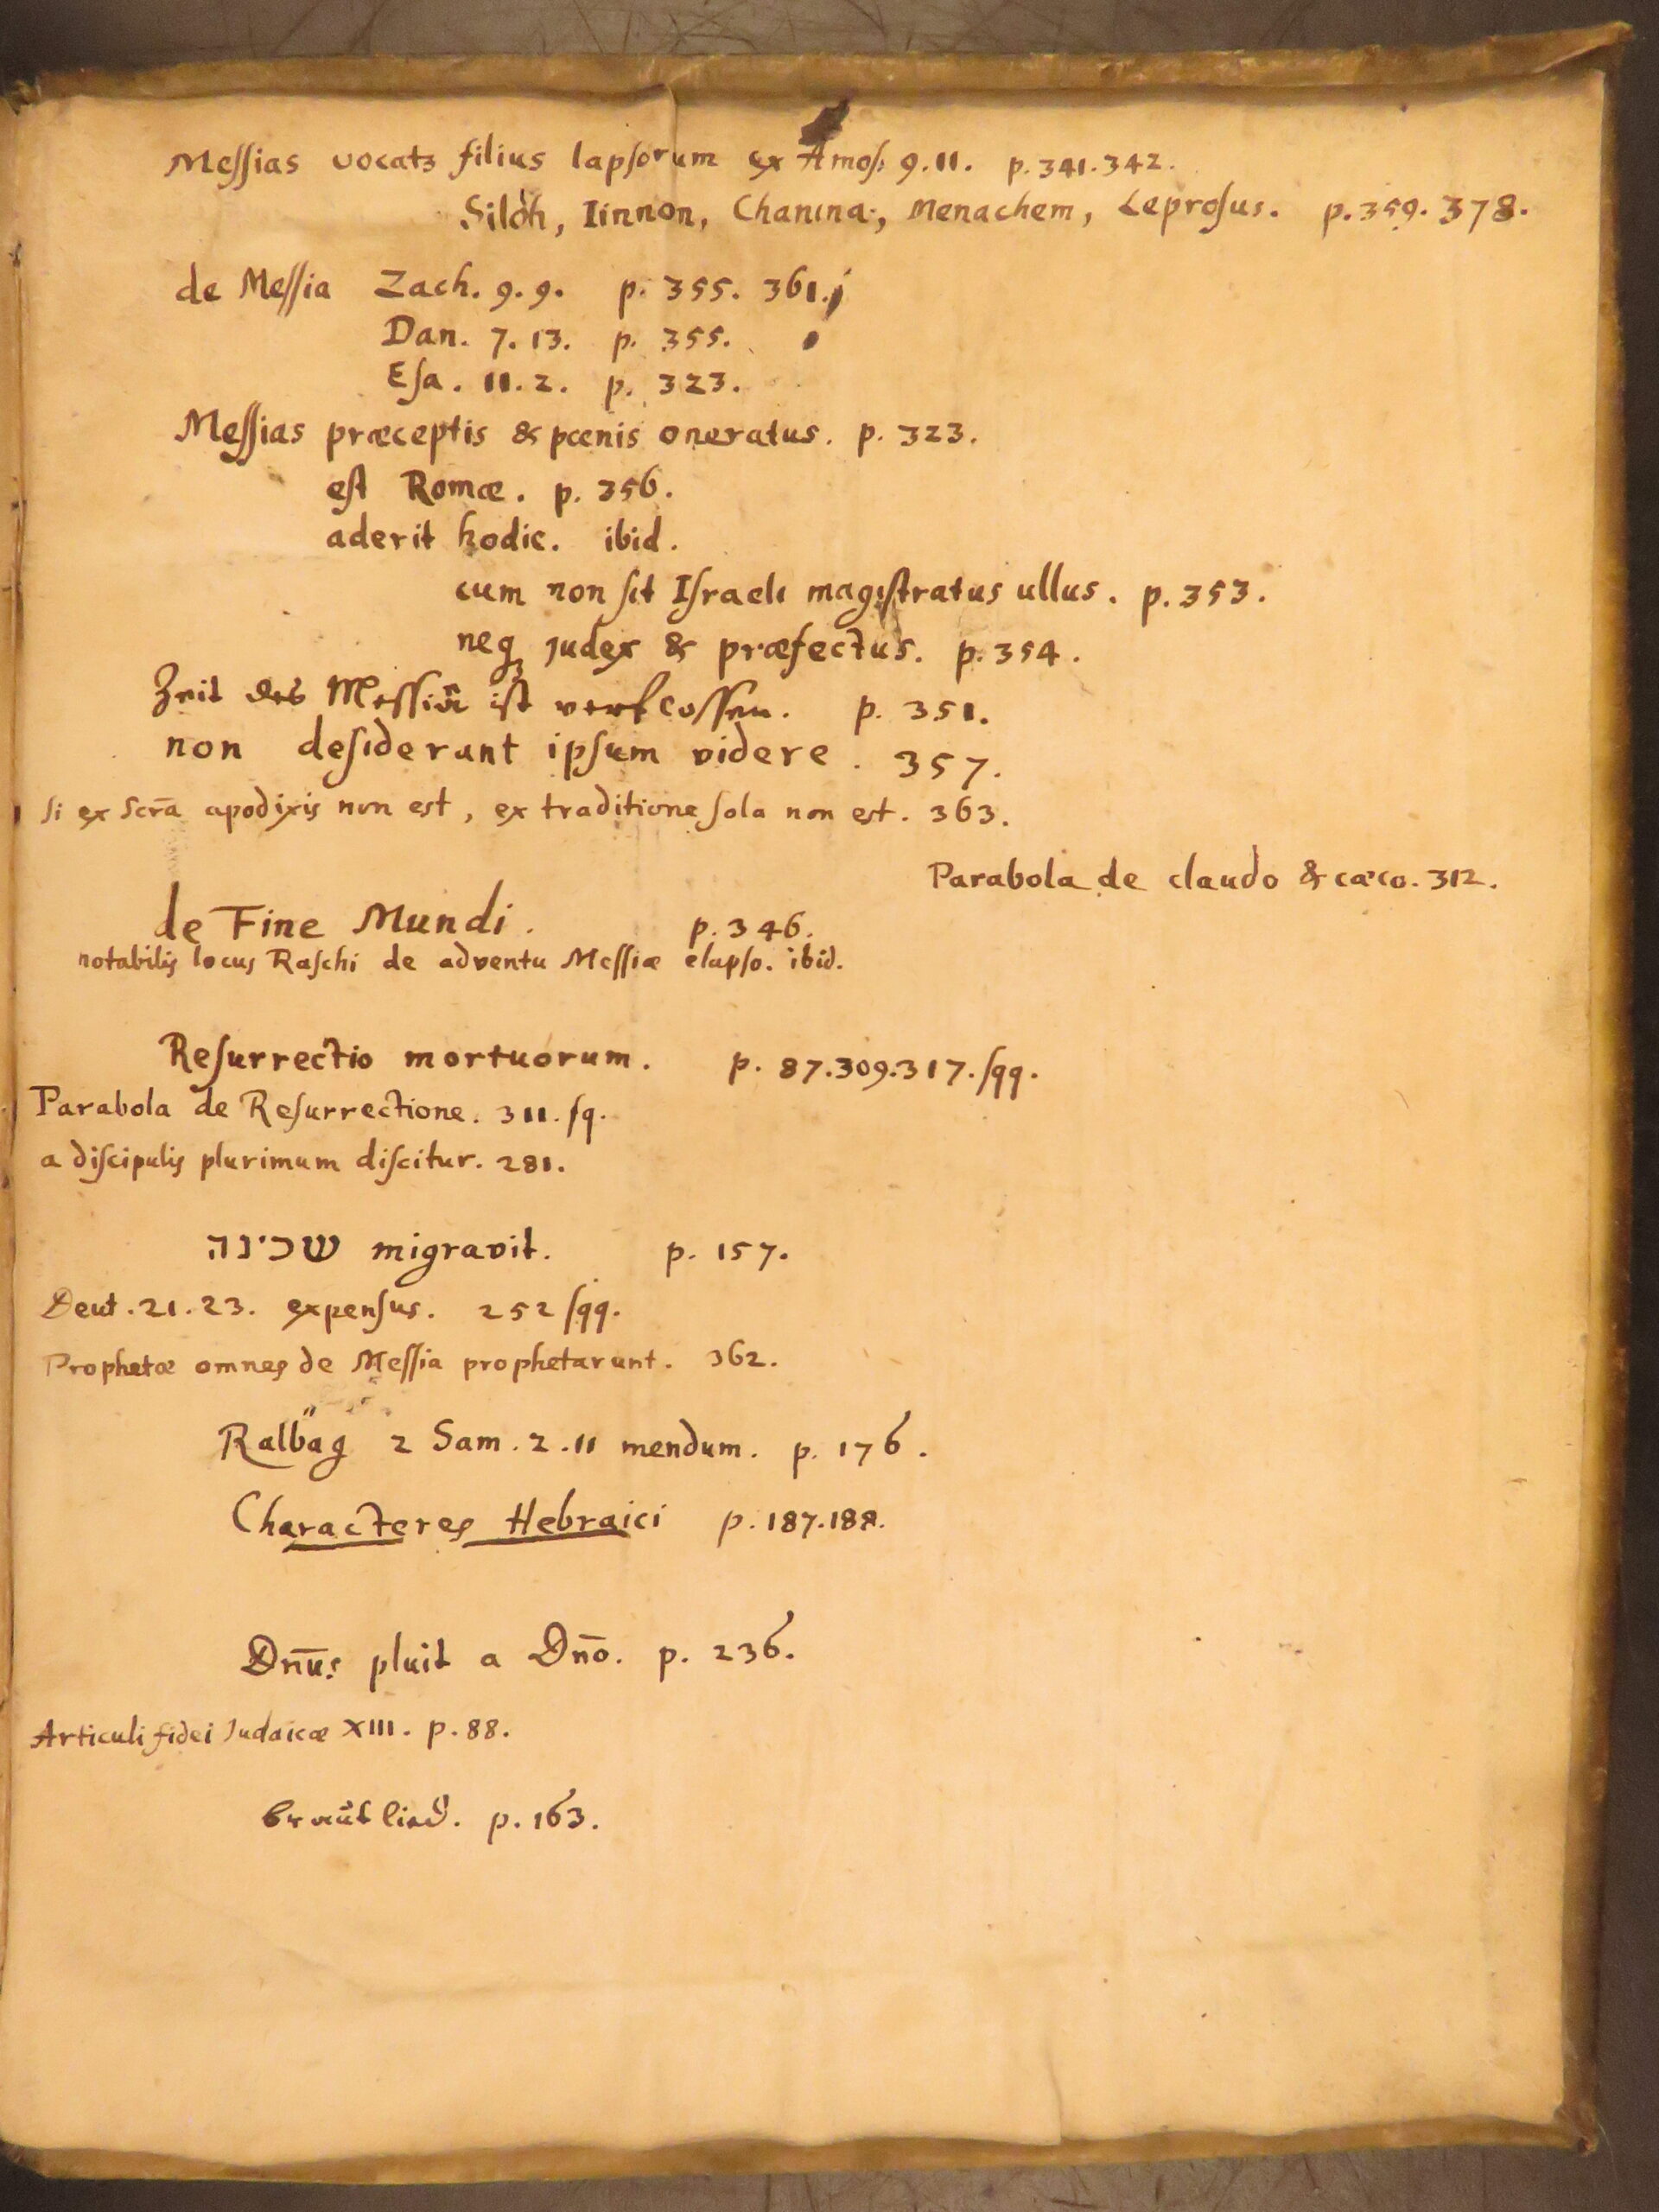 Meſſias vocatꝫ filius lapſorum ex Amoſ. 9.11. p. 341.342.
Siloh, Iinnon, Chanina, Menachem, Leproſus. p. 359. 378.
de Meſſia Zach. 9. 9. p. 355. 361.
Dan. 7. 13. p. 355.
Eſa. 11. 2. p. 323.
Meſſias præceptis & pœnis oneratus. p. 323.
eſt Romæ. p. 356.
aderit hodie. ibid.
cum non ſit Iſraeli magiſtratus ullus. p. 353.
neqꝫ judex & præfectus. p. 354.
Zeit des Meſſiæ iſt verfloſſen. p. 351.
non deſiderant ipſum videre. 357.
Si ex Scrā apodixis non est, ex traditione ſola non est. 363.
Parabola de claudo & cæco. 312.
de Fine Mundi. p. 346.
notabilis locus Raſchi de adventu Meſſiæ elapſo. ibid.
Reſurrectio mortuorum. p. 87.309.317. ſqq.
Parabola de Reſurrectione. 311. ſq.
a diſcipulis plurimum diſcitur. 281.
שכינה migravit. p. 157.
Deut. 21. 23. expenſus. 252 ſqq.
Prophetæ omnes de Meſſia prophetarunt. 362.
Ralb"ag 2 Sam. 2. 11 mendum. p. 176.
Characteres Hebraici p. 187.188.
Dn̄us pluit a Dn̄o. p. 236.
Articuli fidei Judaicæ XIII. p. 88.
brautlied. p. 163.